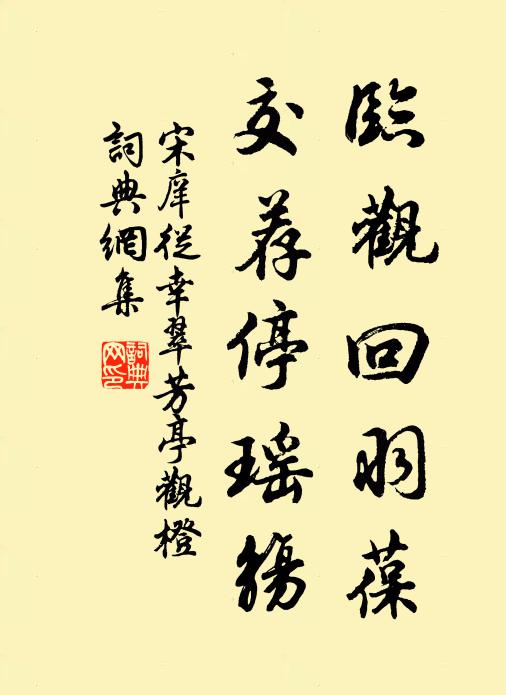 臨觀回羽葆
交荐停瑤觴
宋庠從幸翠芳亭觀橙
詞典網集
詞典網印